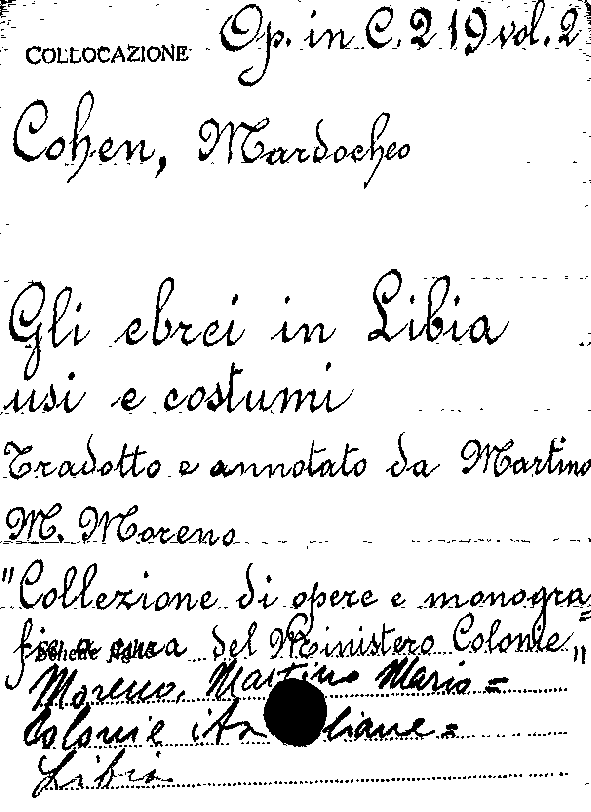 COLLOCAZIONE Op. in C. 219 vol. 2
Cohen, Mardocheo
Gli ebrei in Libia
usi e costumi
Tradotto e annotato da Martino
M. Moreno
"Collezione di opere e monogra=
fie a cura del Ministero Colonie"
Schede figlie
Moreno, Martino Mario =
Colonie italiane =
Libia